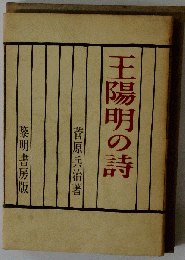 王陽明の詩
菅原兵治著
黎明書房版